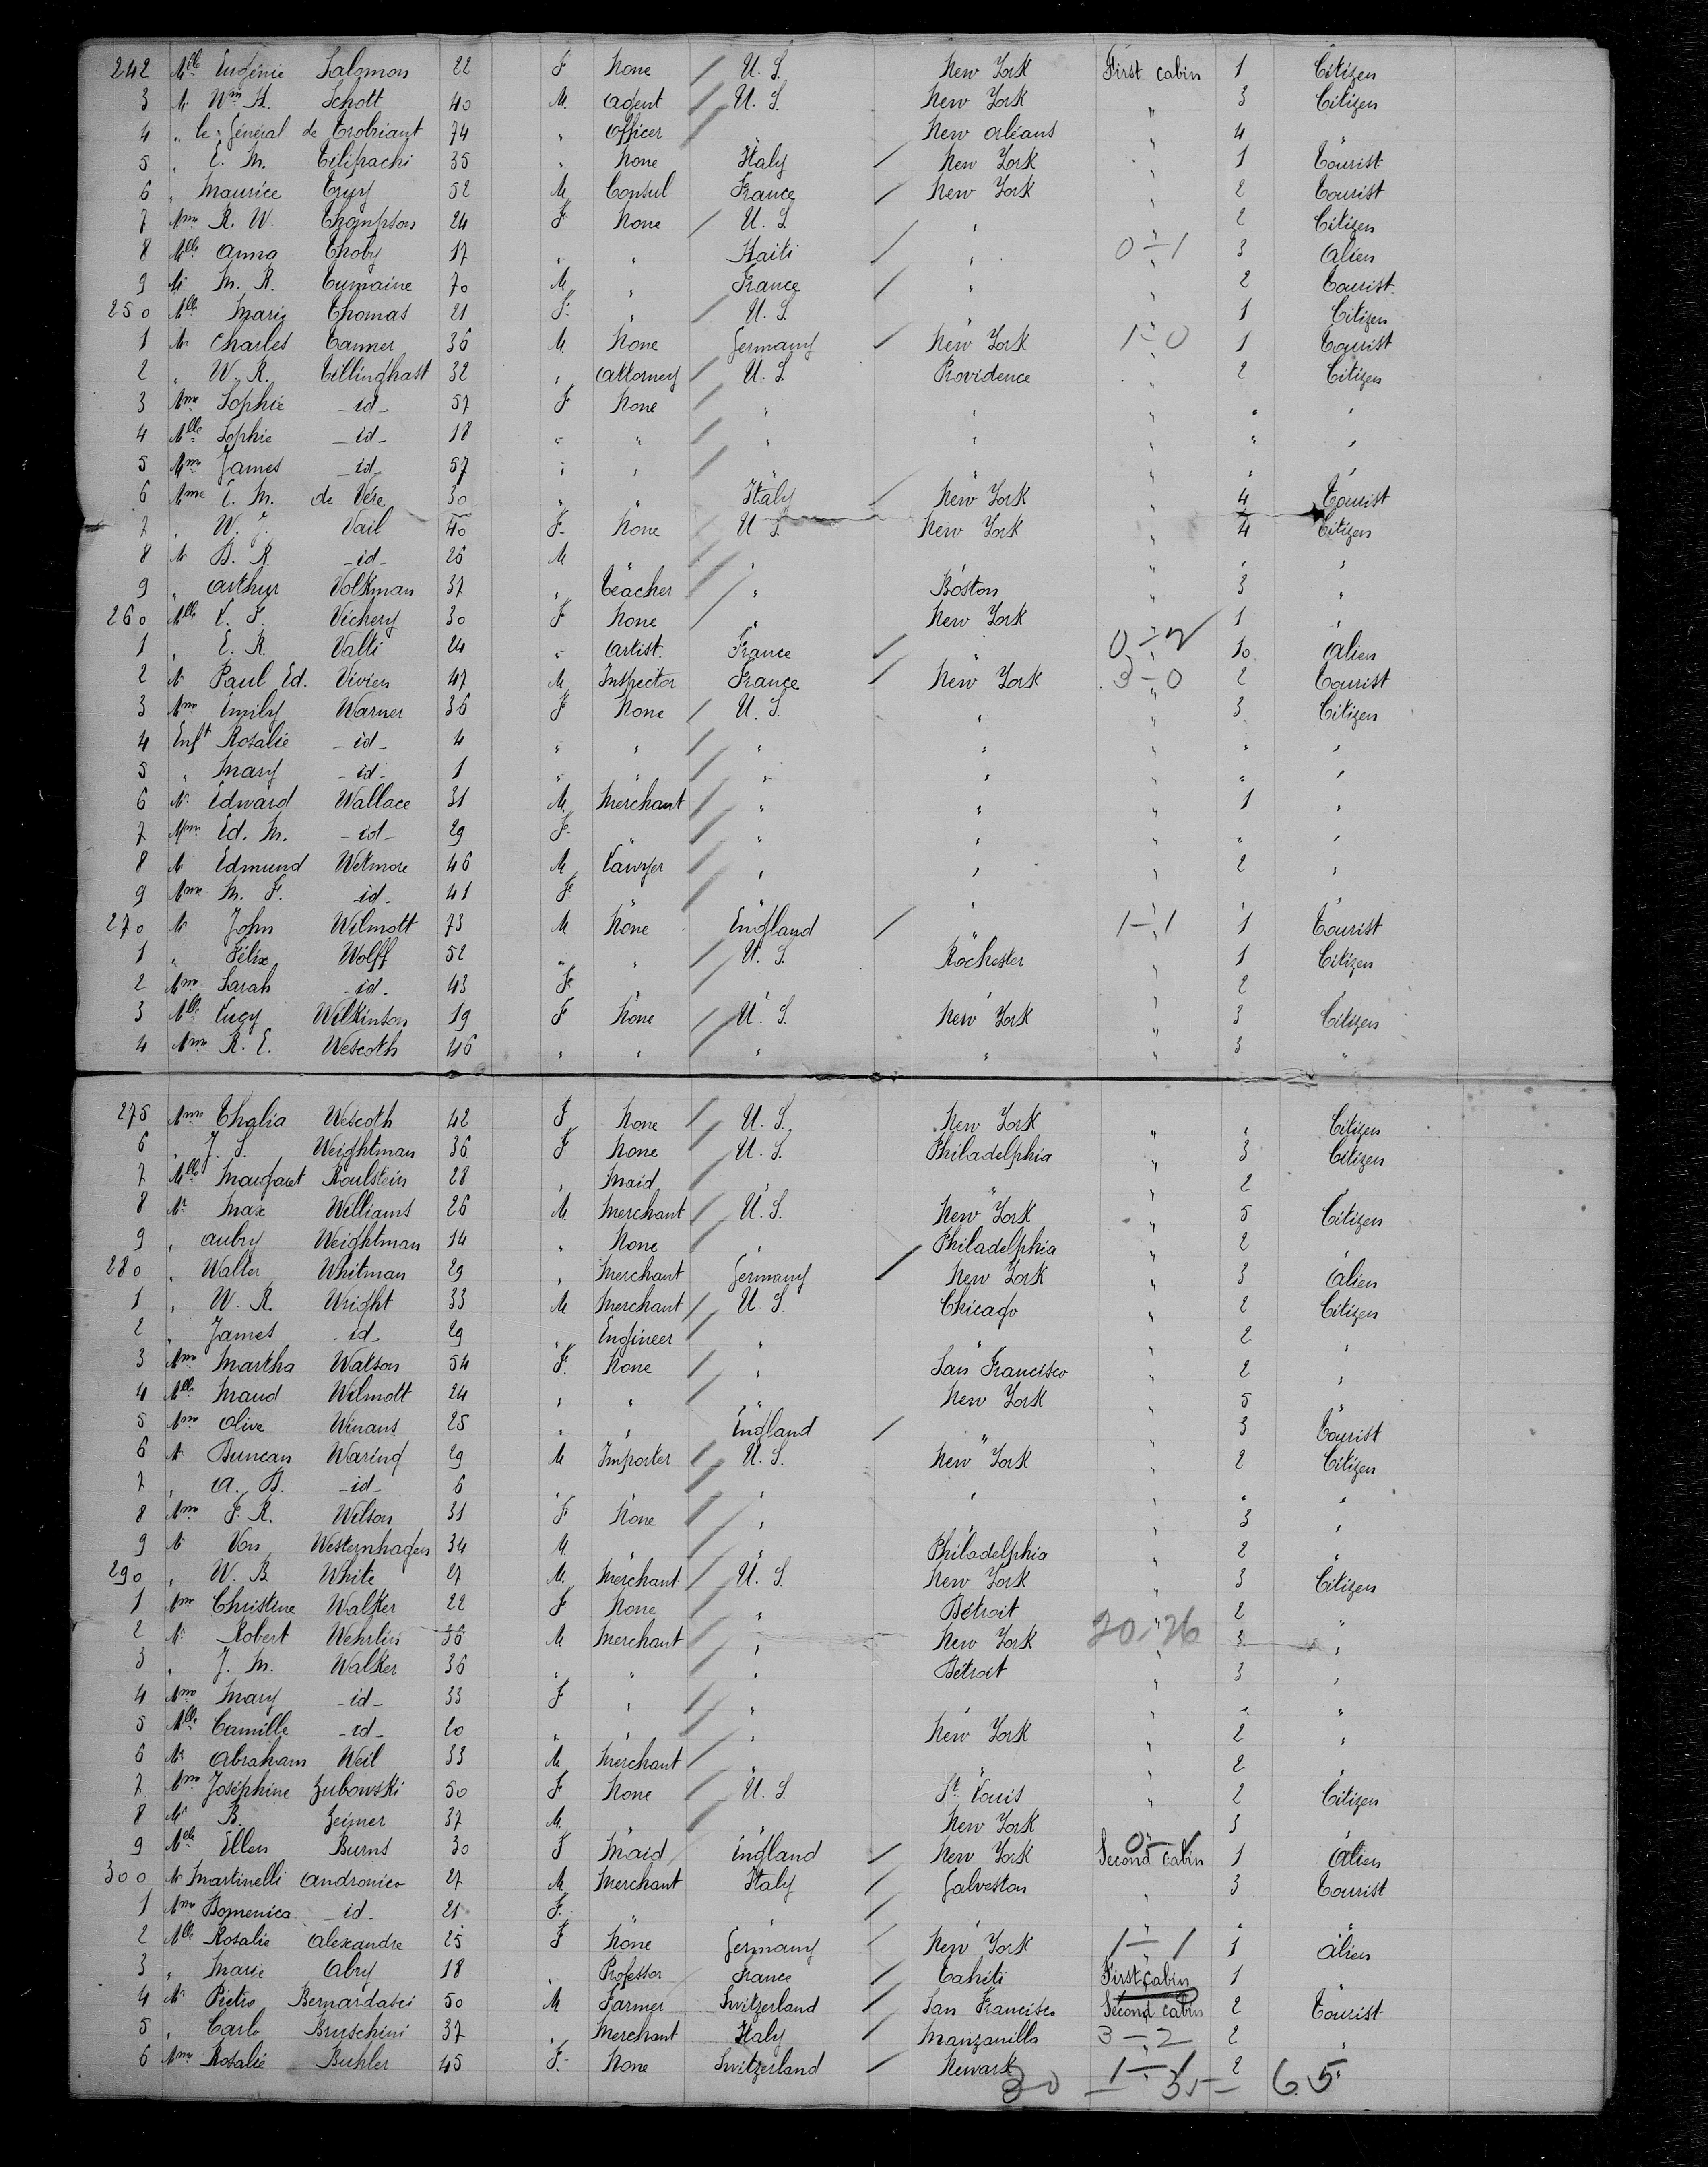 242 Mlle Eugénie Salomon 22 F None / U. S. New York First cabin 1 Citizen
3 Mr Wm H. Schott 40 M. Agent / U. S. New York " 3 Citizen
4 " le Général de Trobriant 74 " Officer / New Orléans " 4 "
5 " E. M. 35 " None Italy / New York " 1 Tourist
6 " Maurice 52 M Consul France / New York " 2 Tourist
7 Mme R. W. Thompson 24 F None / U. S. " " 2 Citizen
8 Mlle Anna Thoby 17 " " Haiti / " 0-1 3 Alien
9 Mr M. R. Tumaine 70 M " France / " " 2 Tourist
250 Mlle Marie Thomas 21 F. " / U. S. " " 1 Citizen
1 Mr Charles Tanner 36 M. None Germany / New York 1-0 1 Tourist
2 " W. R. Tillinghast 32 " Attorney / U. S. Providence " 2 Citizen
3 Mme Sophie -id- 57 F None / " " " " "
4 Mlle Sophie -id- 18 " " / " " " " "
5 Mme James -id- 57 " " / " " " " "
6 Mme E. M. de Vére 30 " " Italy / New York " 4 Tourist
7 " W. J. Vail 40 F. None / U. S. New York " 4 Citizen
8 Mr B. R. -id- 26 M " / " " " " "
9 " Arthur Volkman 37 " Teacher / " Boston " 3 "
260 Mlle F. Vichery 30 F None / " New York " 1 "
1 " E. R. Valti 24 " Artist France / " 0-2 10 Alien
2 Mr Paul Ed. Vivien 47 M Inspector France / New York 3-0 2 Tourist
3 Mme Emily Warner 36 F None / U. S. " " 3 Citizen
4 Enft Rosalie -id- 4 " " / " " " " "
5 " Mary -id- 1 " " / " " " " "
6 Mr Edward Wallace 31 M. Merchant / " " " 1 "
7 Mme Ed. M. -id- 29 F. " / " " " " "
8 Mr Edmund Wetmore 46 M Lawyer / " " " 2 "
9 Mme M. F. id- 41 F " / " " " " "
270 Mr John Wilmott 73 M None England / " 1-1 1 Tourist
1 " Félix Wolff 52 " " / U. S. Rochester " 1 Citizen
2 Mme Sarah id- 43 F " / " " " 2 "
3 Mlle Lucy Wilkinson 19 F None / U. S. New York " 3 Citizen
4 Mme R. E. Wescoth 46 " " / " " " 3 "
275 Mme Thalia Wescoth 42 F None / U. S. New York Citizen
6 " J. S. Weightman 36 F None / U. S. Philadelphia " 3 Citizen
7 Mlle Margaret Roulstein 28 " Maid / " " " 2 "
8 Mr Max Williams 26 M. Merchant / U. S. New York " 5 Citizen
9 " Aubry Weightman 14 " None / " Philadelphia " 2 "
280 " Walter Whitman 29 " Merchant Germany / New York " 3 Alien
1 " W. R. Wright 33 M Merchant / U. S. Chicago " 2 Citizen
2 " James -id- 29 " Engineer / " " " 2 "
3 Mme Martha Watson 54 F. None / " San Francisco " 2 "
4 Mlle Maud Wilmott 24 " " / " New York " 5 "
5 Mme Olive Winans 25 " " England / " " 3 Tourist
6 Mr Duncan Waring 29 M Importer / U. S. New York " 2 Citizen
7 " A. B. -id- 6 " " / " " " " "
8 Mme F. R. Wilson 31 F None / " " " 3 "
9 Mr Von Westernhagen 34 M. " / " Philadelphia " 2 "
290 " W. B. White 27 M. Merchant / U. S. New York " 3 Citizen
1 Mme Christine Walker 22 F None / " Détroit " 2 "
2 Mr Robert Wehrlin 36 M Merchant / " New York 20-26 3 "
3 " J. M. Walker 36 " " / " Détroit " 3 "
4 Mme Mary -id- 33 F " / " " " " "
5 Mlle Camille -id- 20 " " / " New York " 2 "
6 Mr Abraham Weil 33 M Merchant / " " " 2 "
7 Mme Joséphine Zubowski 50 F None / U. S. St Louis " 2 Citizen
8 Mr B. Zeimer 37 M. " / " New York " 3 "
9 Mlle Ellen Burns 30 F Maid England / New York Second cabin 0-1 1 Alien
300 Mr Martinelli Andronico 27 M. Merchant Italy / Galveston " 3 Tourist
1 Mme Domenica -id- 21 F. " " / " " " "
2 Mlle Rosalie Alexandre 25 F None Germany / New York 1-1 1 Alien
3 " Marie Abry 18 " Professor France / Tahiti First cabin 1 "
4 Mr Pietro Bernardasci 50 M Farmer Switzerland / San Francisco Second cabin 2 Tourist
5 " Carlo Bruschini 37 " Merchant Italy / Manzanillo 3-2 2 "
6 Mme Rosalie Buhler 45 F. None Switzerland Newark 1-1 2 "
30 - 35 - 65